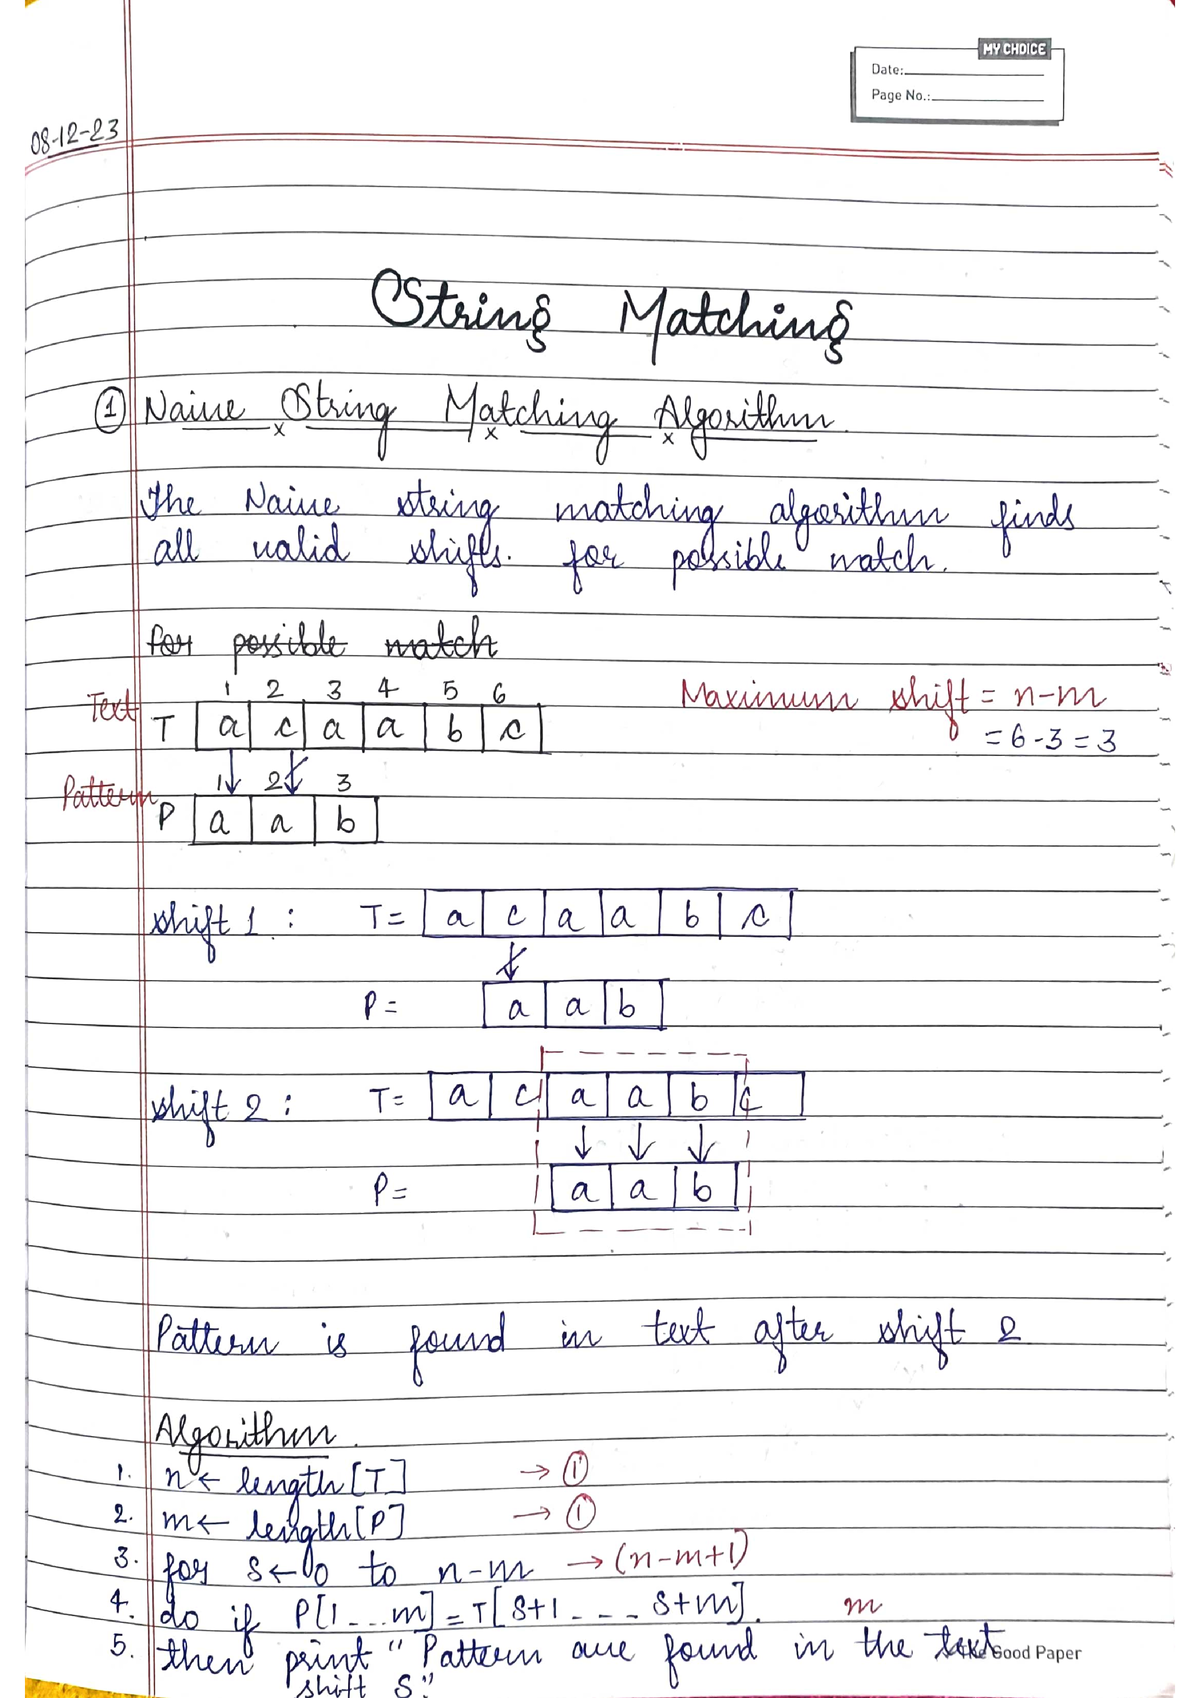 MY CHOICE
Date:
Page No.:
08-12-23
String Matching
① Naive String Matching Algorithm.
The Naive string matching algorithm finds
all valid shifts. for possible match.
for possible match
1 2 3 4 5 6
Text T a c a a b c
Maximum shift = n-m
= 6-3 = 3
1 2 3
Pattern P a a b
shift 1 : T= a c a a b c
P= a a b
shift 2 : T= a c a a b c
P= a a b
Pattern is found in text after shift 2
Algorithm.
1. n ← length [T] → ①
2. m ← length [P] → ①
3. for s ← 0 to n-m → (n-m+1)
4. do if P[1...m] = T[s+1 - - - s+m]. m
5. then print "Pattern are found in the text
Good Paper
shift s"